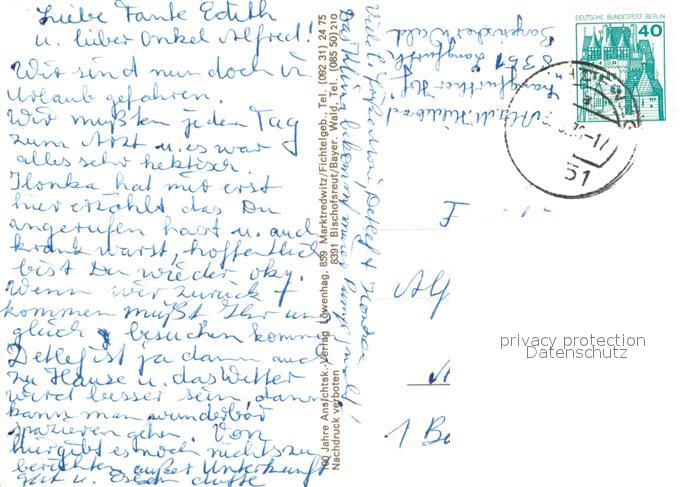 Liebe Tante Edith
u. lieber Onkel Alfred!
Wir sind nun doch in
Urlaub gefahren.
Wir mußten jeden Tag
zum Arzt u. es war
alles sehr hektisch.
Ilonka hat mir erst
hier erzählt das Du
angerufen hast u. auch
krank warst, hoffentlich
bist Du wieder oky.
Wenn wir zurück
kommen müßt Ihr un
gleich besuchen komm
Detlef ist ja dann auch
zu Hause u. das Wetter
wird besser sein, dann
kann man wunderbar
spazieren gehen. Von
hier gibt es noch nichts zu
berichten außer Unterkunft
gut u. Essen dufte
100 Jahre Ansichtsk.-Verlag Löwenhag, 859 Marktredwitz/Fichtelgeb., Tel. (092 31) 24 75
8391 Bischofsreut/Bayer. Wald, Tel. (085 50) 210
Nachdruck verboten
Detlef + Ilonka
8351 Langfurth
Bayrischer Wald
DEUTSCHE BUNDESPOST BERLIN
40
51
E
Alf
1 Be
privacy protection
Datenschutz